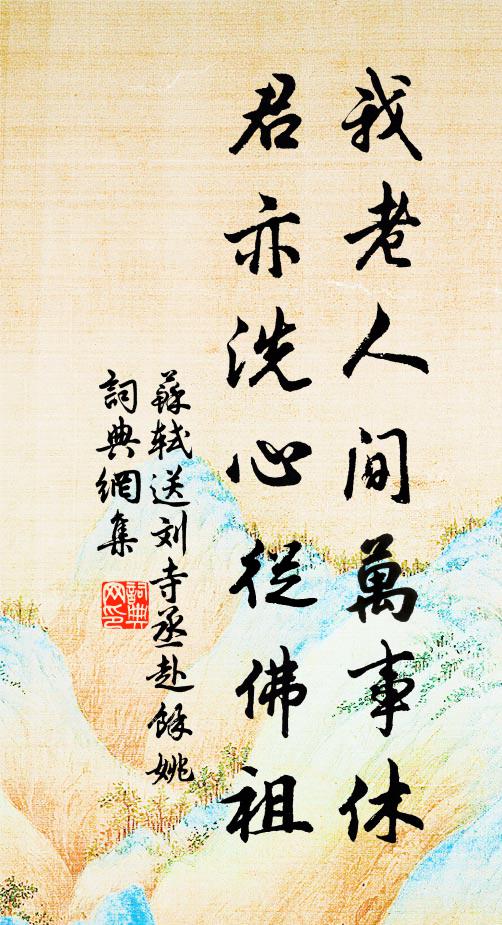 我老人间萬事休
君亦洗心從佛祖
蘇軾送刘寺丞赴餘姚
詞典網集
詞典
网印